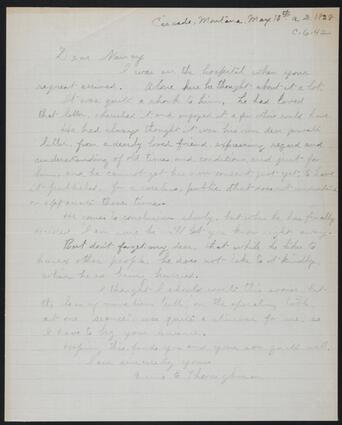 Cascade, Montana, May 18th
Dear Nancy
I was in the hospital when your
request arrived. Alone here he thought about it a lot.
It was quite a shock to him, he had loved
that letter, cherished it and enjoyed it as few others could have.
He had always thought it was his own dear private
letter, from a dearly loved friend, expressing regard and
understanding of old times and conditions and just for
him, and he cannot get his own consent just yet, to have
it published. For a careless, public that does not understand
or appreciate those times.
He comes to conclusions slowly, but when he has finally
decided I am sure he will let you know right away.
But don't forget my dear, that while he likes to
hurry other people, he does not take to it kindly,
when he is being hurried.
I thought I should write this sooner but
the
at one
I have to beg your
Hoping this finds you and your son quite well.
I am sincerely yours